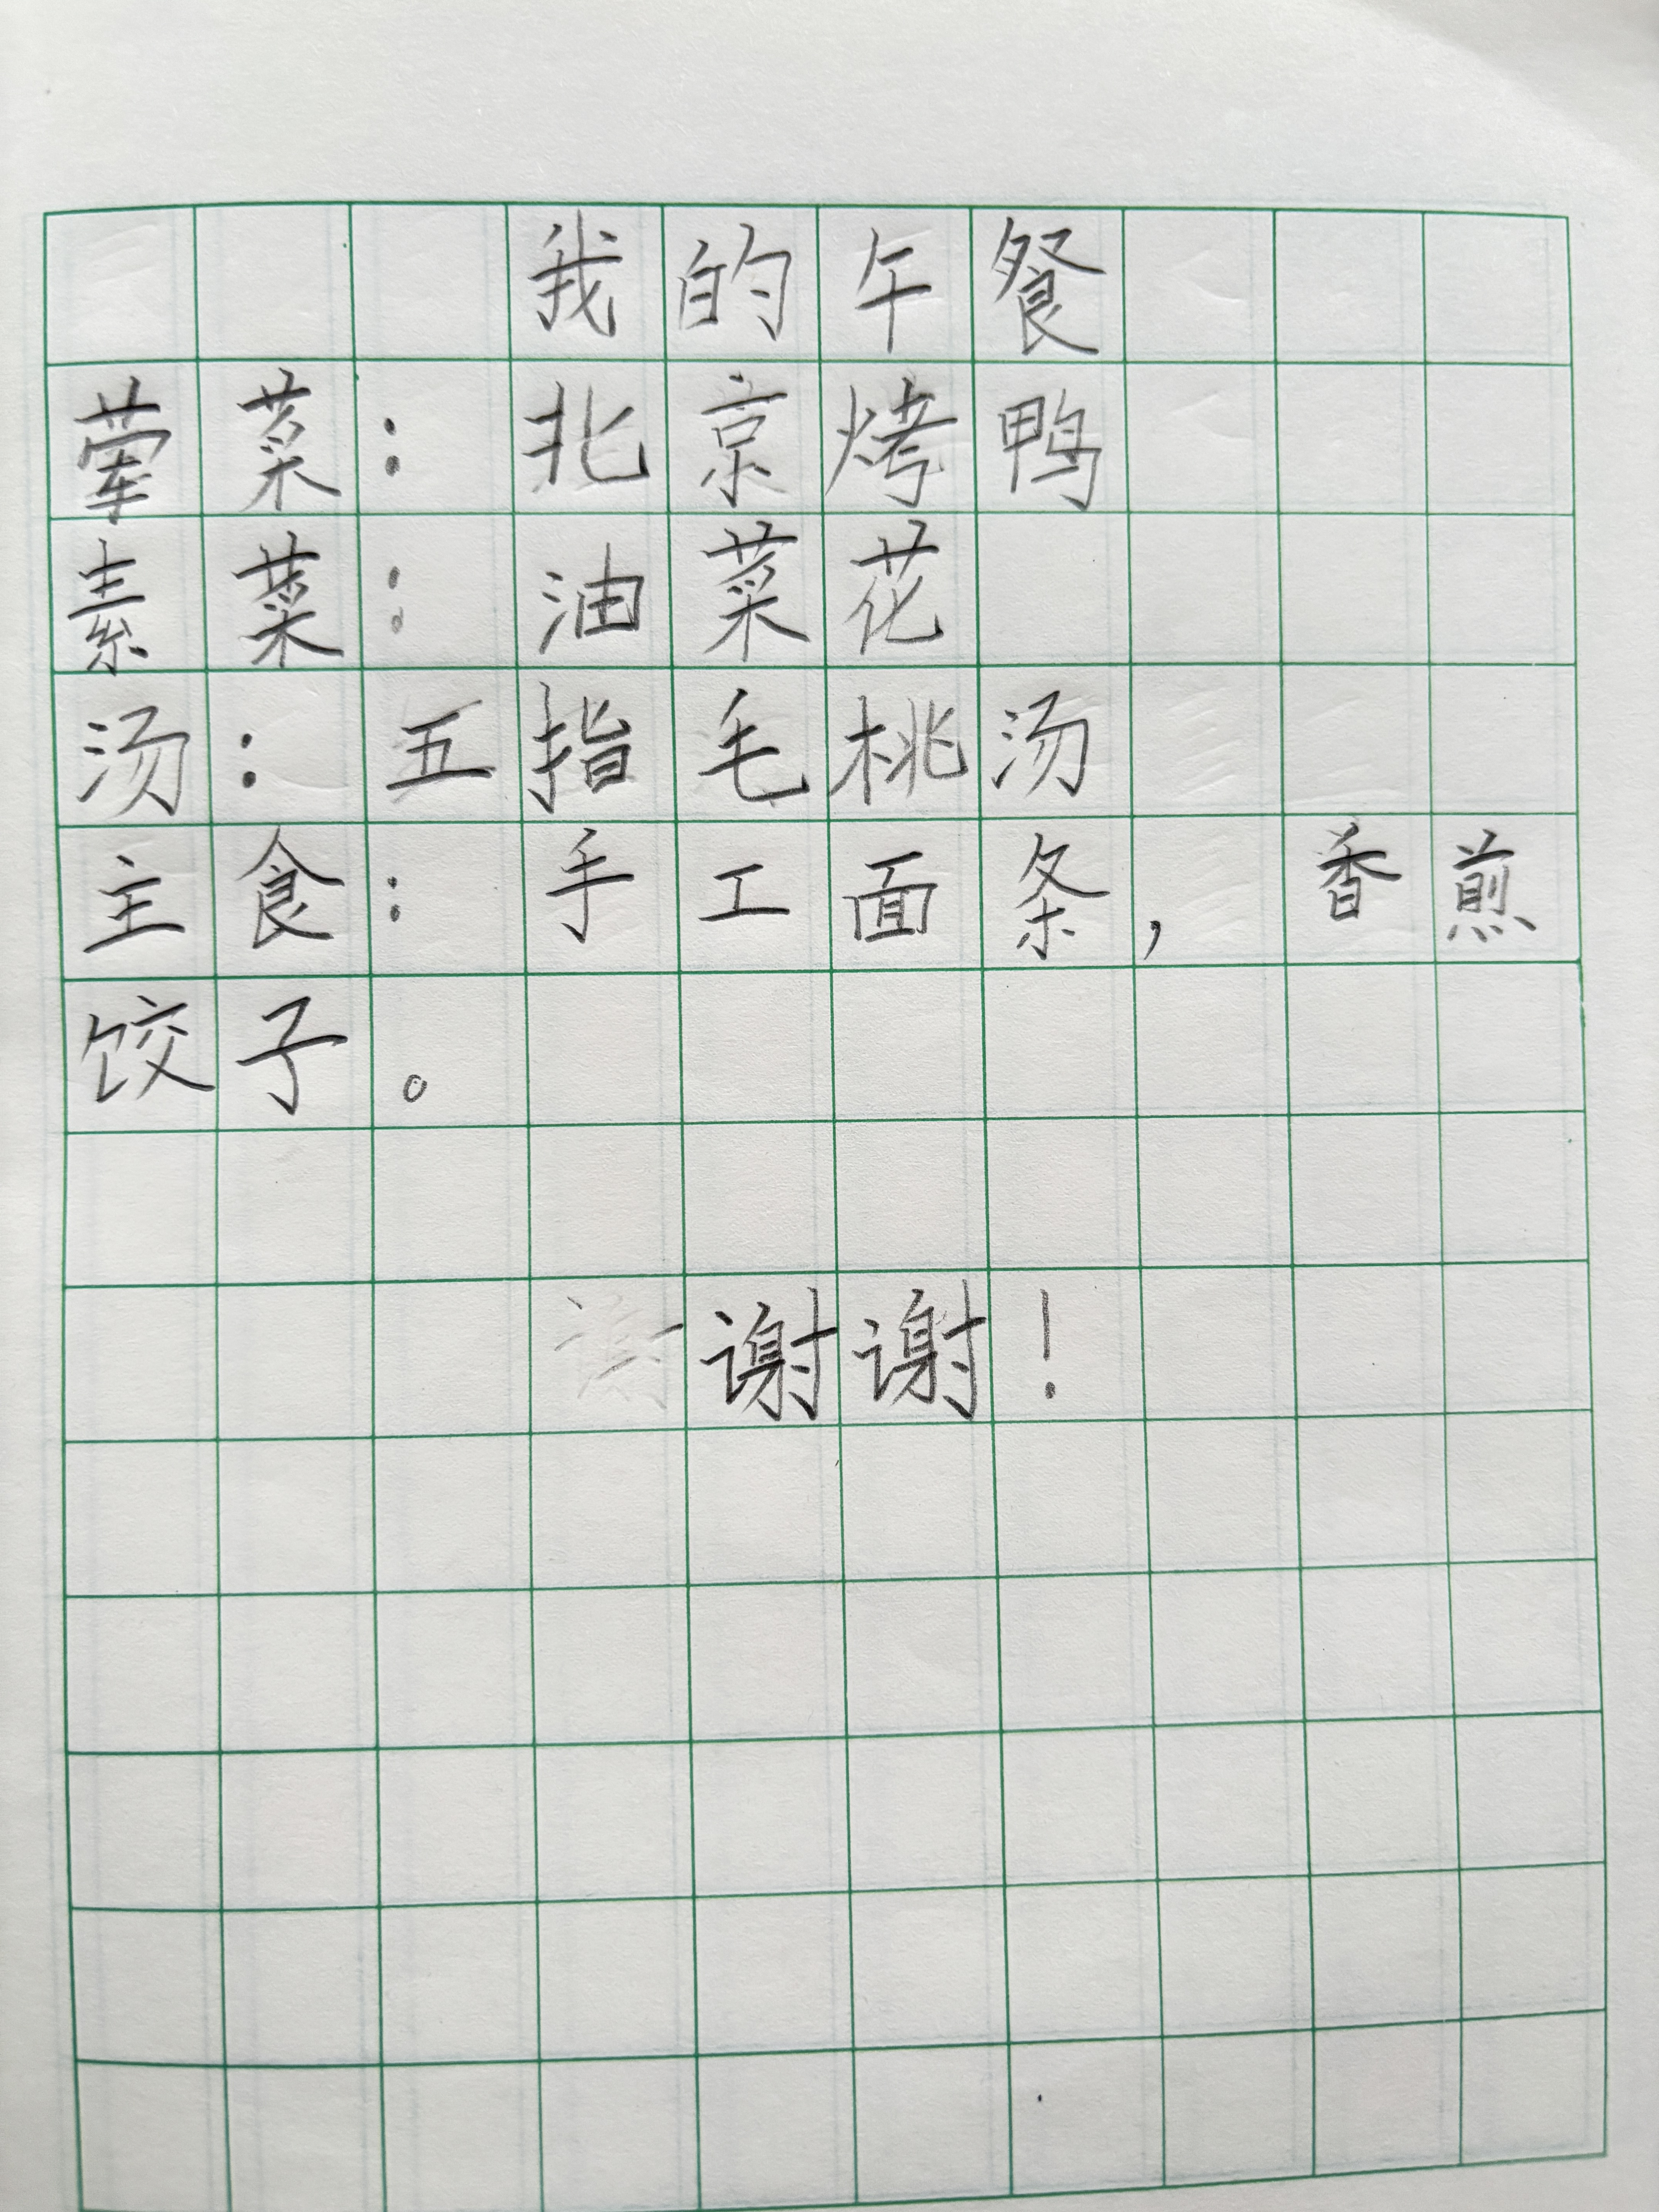 我的午餐
荤菜：北京烤鸭
素菜：油菜花
汤：五指毛桃汤
主食：手工面条，香煎
饺子。
谢谢！